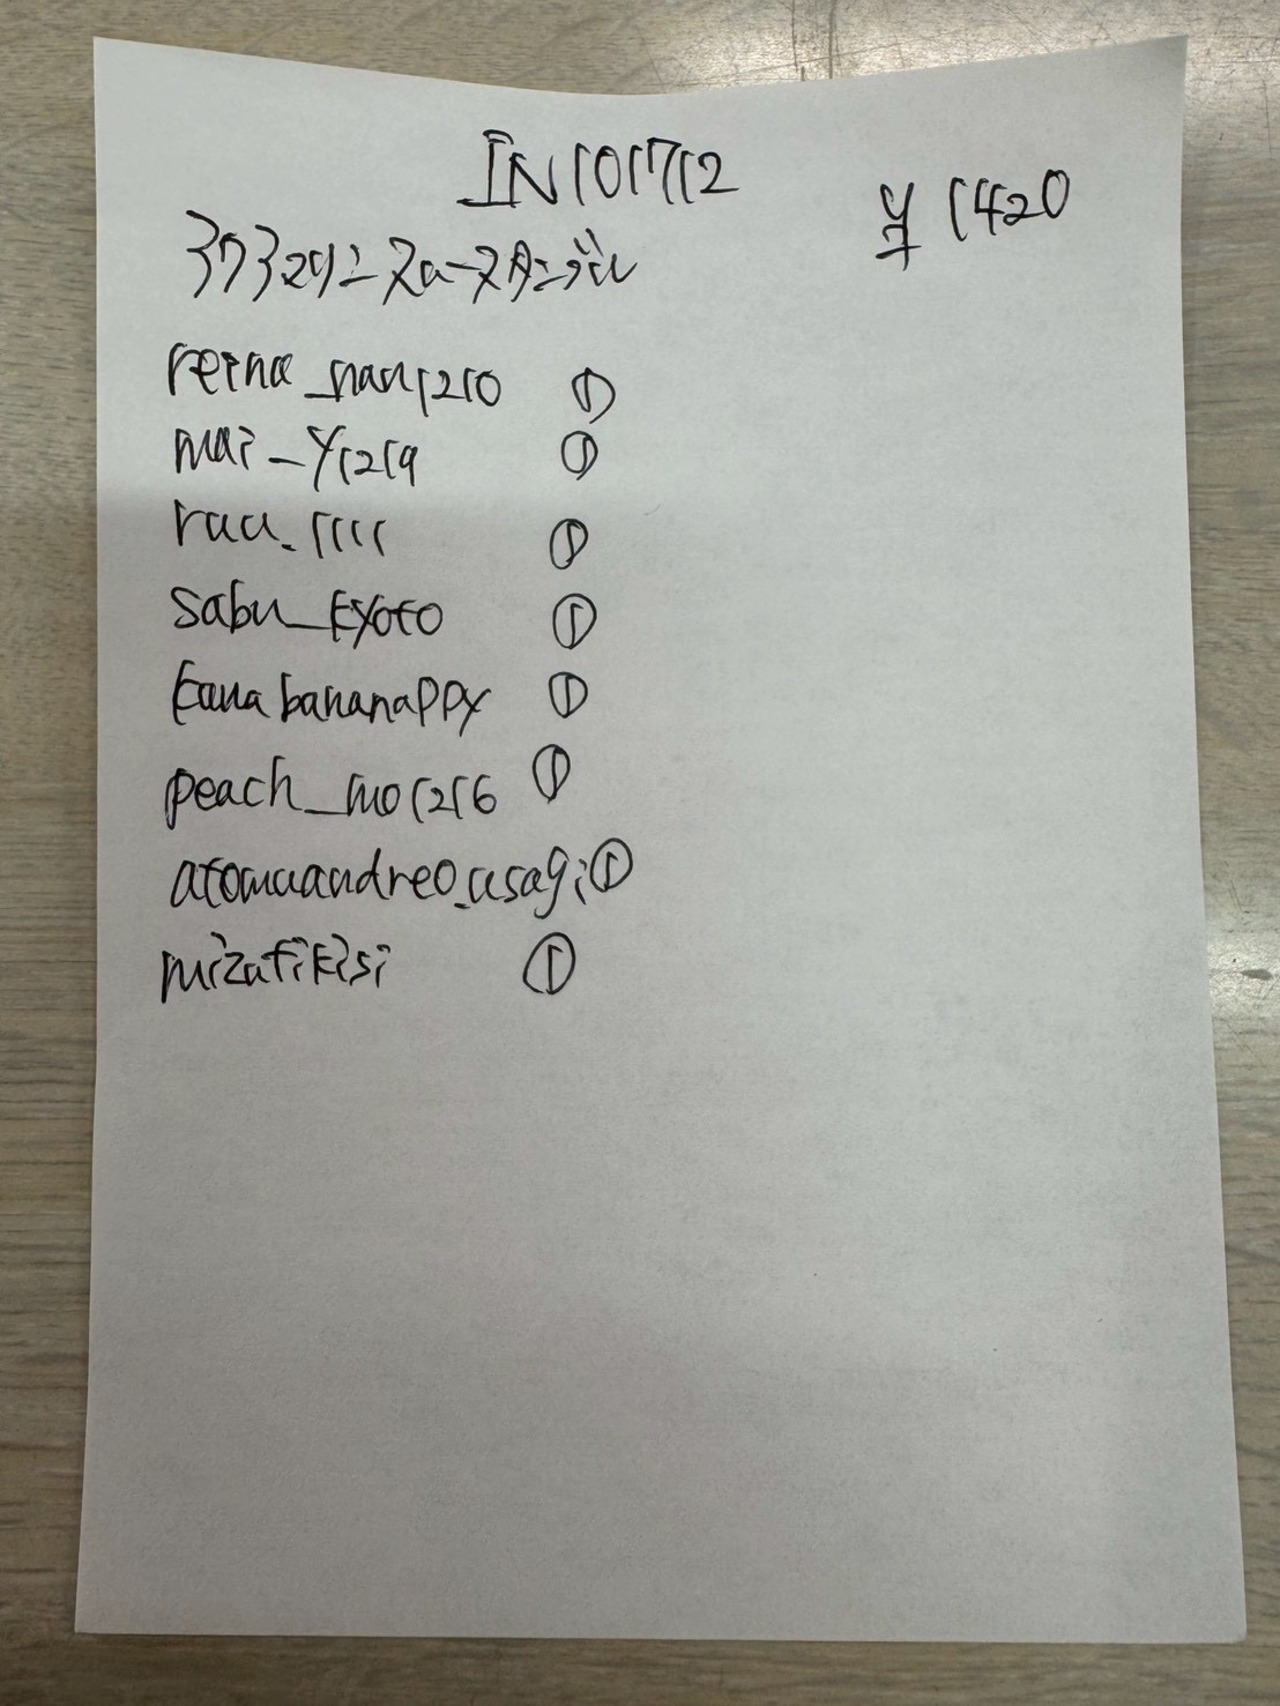 IN101712
¥1420
373ミリミニスロースタンブル
reina_nan1210 ①
mai_y1219 ①
rau_1111 ①
sabu_kyoto ①
kanabananappy ①
peach_mo1216 ①
atomuandreo_usagi ①
mizutikisi ①